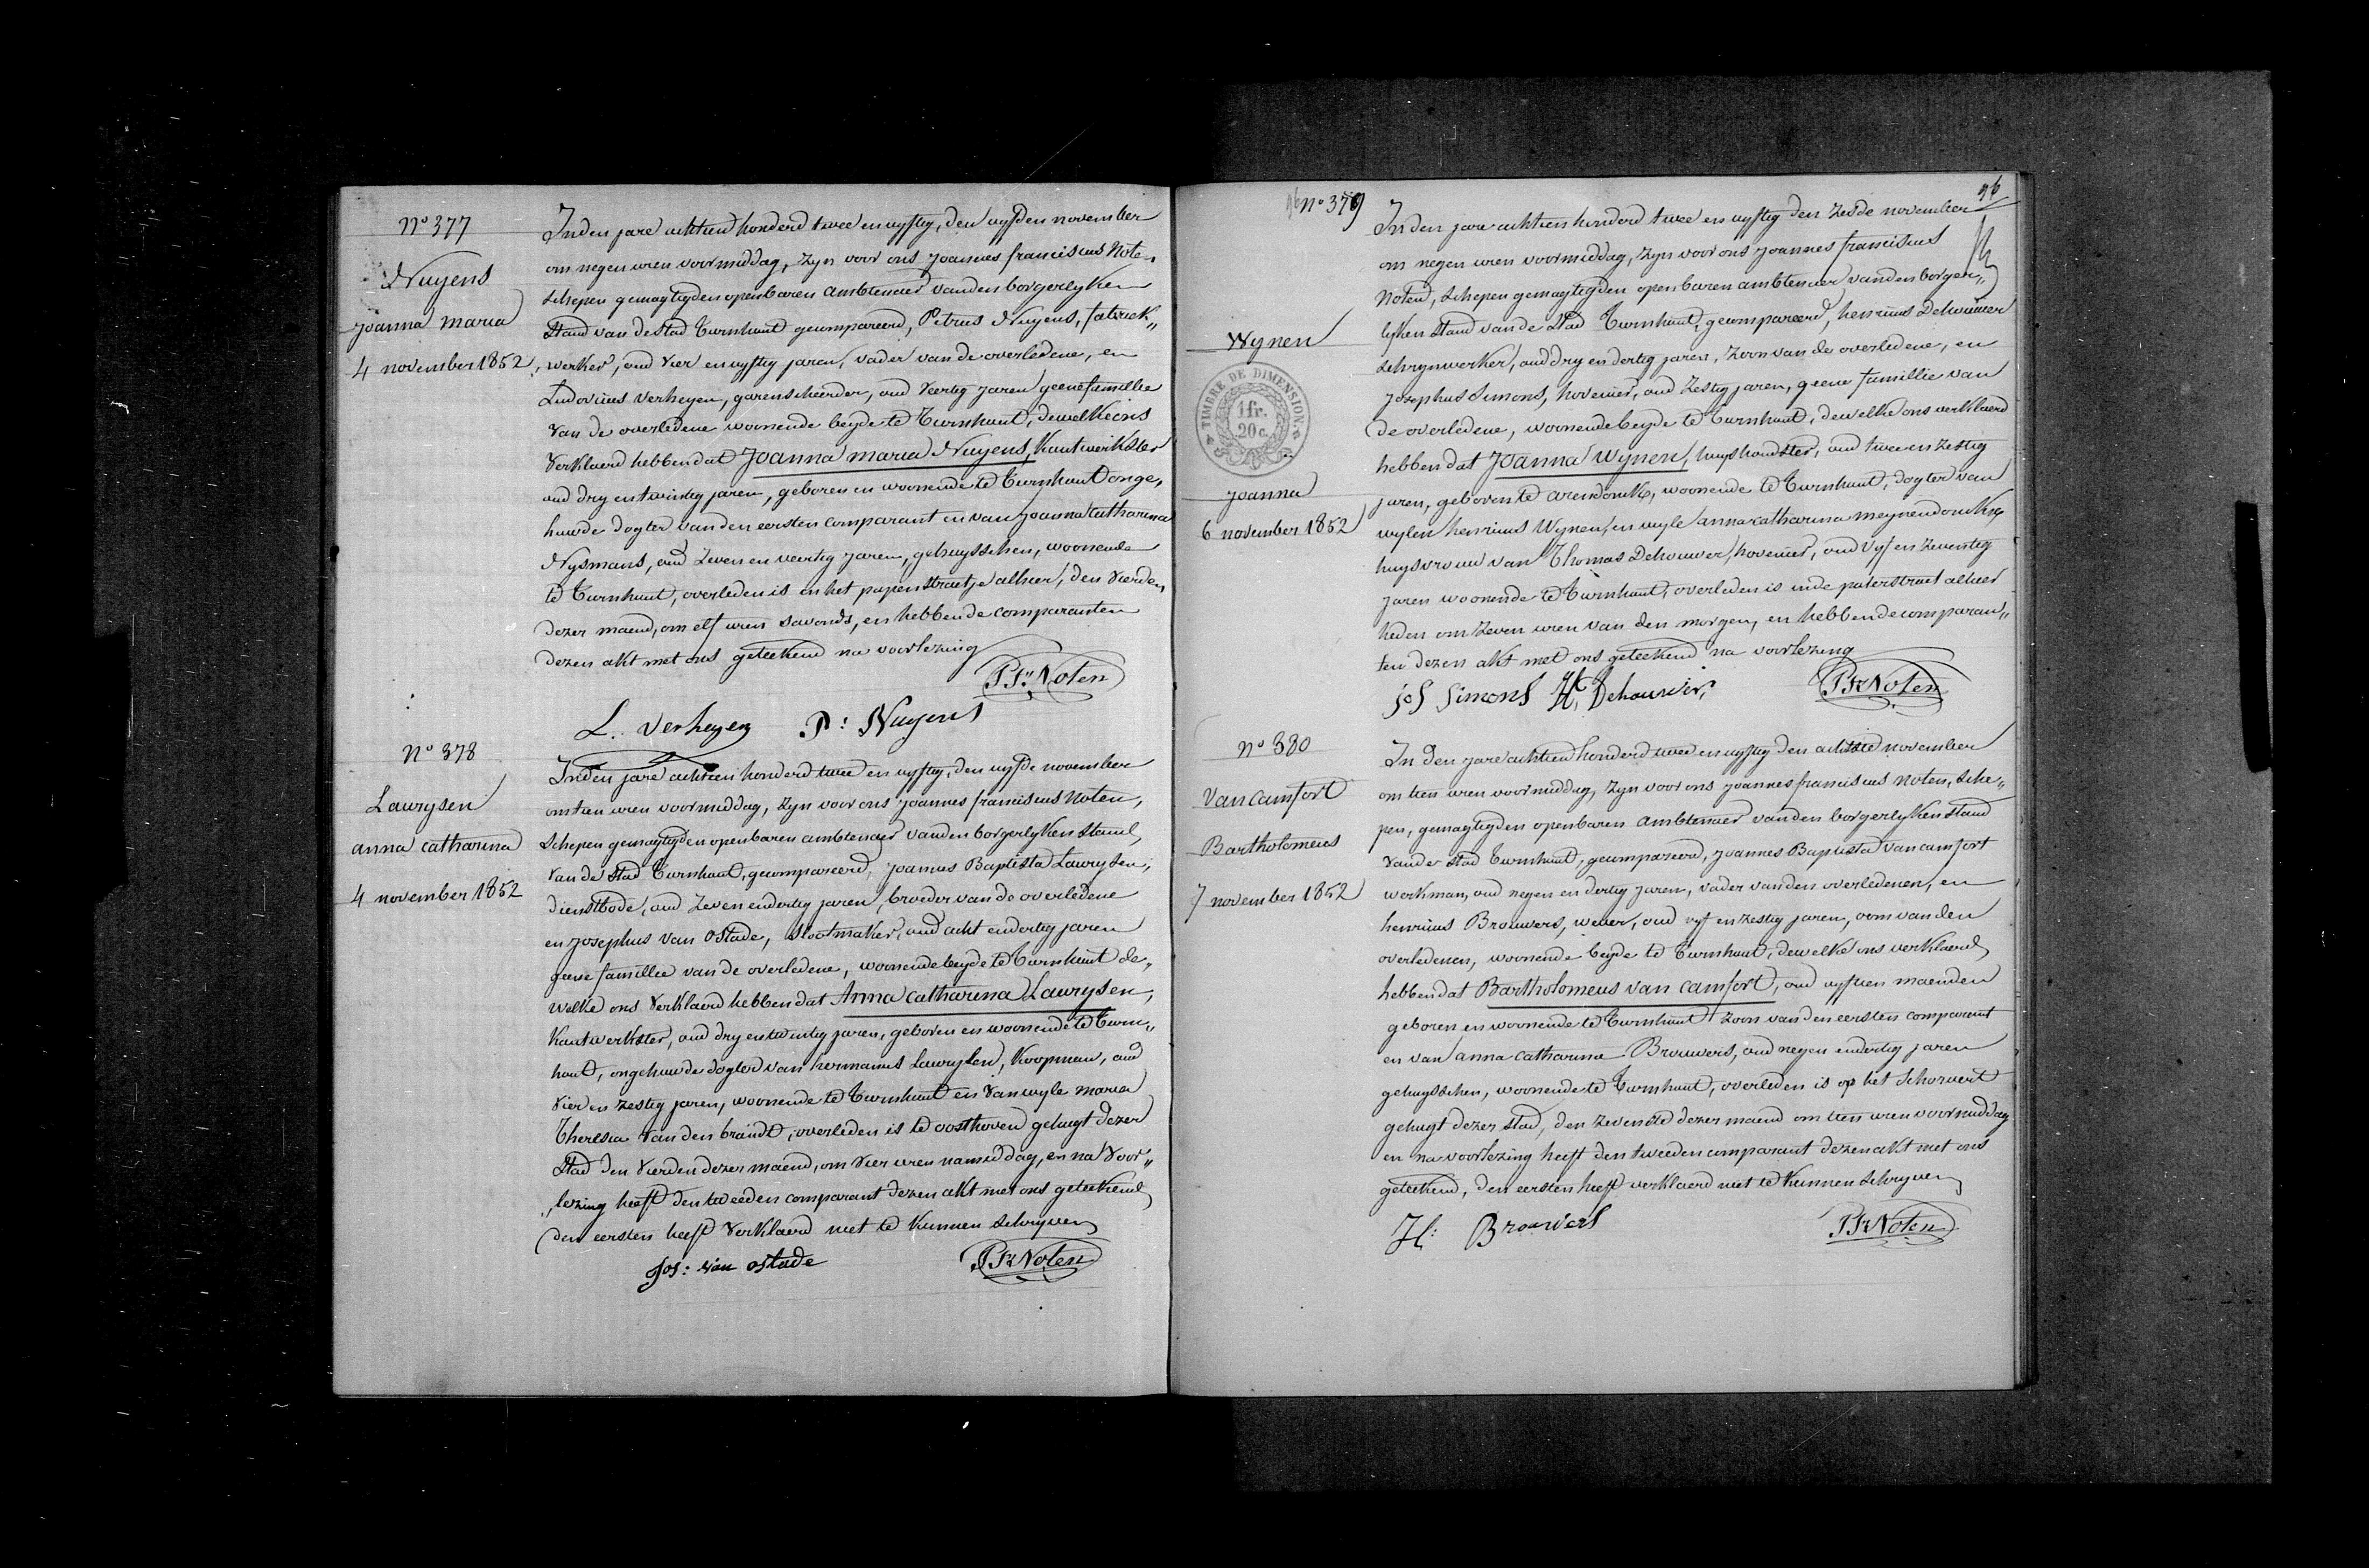 N° 377
Nuyens
joanna maria
4 november 1852
In den jare achtien honderd twee en vyftig, den vyfden november
om negen uren voormiddag, zyn voor ons joannes franciscus Noten
schepen gemagtigden openbaren ambtenaer van den borgerlyken
stand van de stad Turnhout gecompareerd, Petrus Nuyens, fabriek„
werker, oud vier en vyftig jaren, vader van de overledene, en
Ludovicus Verheyen, garenscheerder, oud veertig jaren geene famillie
van de overledene woonende beyde te Turnhout, dewelke ons
verklaerd hebben dat Joanna maria Nuyens, kantwerkster
oud dry en twintig jaren, geboren en woonende te Turnhout onge„
huwde dogter van den eersten comparant en van joanna catharina
Nysmans, oud zeven en veertig jaren, gehuysschen, woonende
te Turnhout, overleden is in het papenstraetje alhier, den vierden
dezer maend, om elf uren savonds, en hebben de comparanten
dezen akt met ons geteekend na voorlezing
L. Verheyen P: Nuyens
JFr Noten
N° 378
Laurysen
anna catharina
4 november 1852
In den jare achtien honderd twee en vyftig, den vyfde november
om tien uren voormiddag, zyn voor ons joannes franciscus Noten,
schepen gemagtigden openbaren ambtenaer van den borgerlyken stand
van de stad Turnhout, gecompareerd, joannes Baptista Laurysen,
dienstbode, oud zeven en dertig jaren, broeder van de overledene
en josephus van Ostade, slootmaker, oud acht en dertig jaren
geene famillie van de overledene, woonende beyde te Turnhout de„
welke ons verklaerd hebben dat Anna catharina Laurysen,
kantwerkster, oud dry en twintig jaren, geboren en woonende te Turn„
hout, ongehuwde dogter van hermanus Laurysen, koopman, oud
vier en zestig jaren, woonende te Turnhout en van wyle maria
Theresia van den brandt, overleden is te oosthoven gehugt dezer
stad den vierden dezer maend, om vier uren namiddag, en na voor„
„lezing heeft den tweeden comparant dezen akt met ons geteekend
den eersten heeft verklaerd niet te kunnen schryven
Jos: van ostade JFr Noten
96
N° 379
Wynen
TIMBRE DE DIMENSION
1 fr.
20 c.
joanna
6 november 1852
In den jare achtien honderd twee en vyftig den zesde november
om negen uren voormiddag, zyn voor ons joannes franciscus
Noten, schepen gemagtigden openbaren ambtenaer van den borger„
lyken stand van de stad Turnhout, gecompareerd, henricus Dehouwer
schrynwerker, oud dry en dertig jaren, zoon van de overledene, en
josephus Simons, hovenier, oud zestig jaren, geene famillie van
de overledene, woonende beyde te Turnhout, dewelke ons verklaerd
hebben dat Joanna Wynen, huyshoudster, oud twee en zestig
jaren, geboren te arendonck, woonende te Turnhout, dogter van
wylen henricus Wynen en wyle anna catharina meynendonckx
huysvrouw van Thomas Dehouwer, hovenier, oud vyf en zeventig
jaren woonende te Turnhout, overleden is in de paterstraet alhier
heden om zeven uren van den morgen, en hebben de comparan„
ten dezen akt met ons geteekend na voorlezing
jos Simons H. Dehouwer JFr Noten
N° 380
Van camfort
Bartholomeus
7 november 1852
In den jare achtien honderd twee en vyftig den achtste november
om tien uren voormiddag, zyn voor ons joannes franciscus Noten, sche„
pen, gemagtigden openbaren ambtenaer van den borgerlyken stand
van de stad Turnhout, gecompareerd, joannes Baptista van camfort
werkman, oud negen en dertig jaren, vader van den overledenen, en
henricus Brouwers, wever, oud vyf en zestig jaren, oom van den
overledenen, woonende beyde te Turnhout, dewelke ons verklaerd
hebben dat Bartholomeus van camfort, oud vyftien maenden
geboren en woonende te Turnhout zoon van den eersten comparant
en van anna catharina Brouwers, oud negen en dertig jaren
gehuysschen, woonende te Turnhout, overleden is op het Schorvort
gehugt dezer stad, den zevenste dezer maend om tien uren voormiddag
en na voorlezing heeft den tweeden comparant dezen akt met ons
geteekend, den eersten heeft verklaerd niet te kunnen schryven
H: Brouwers JFr Noten